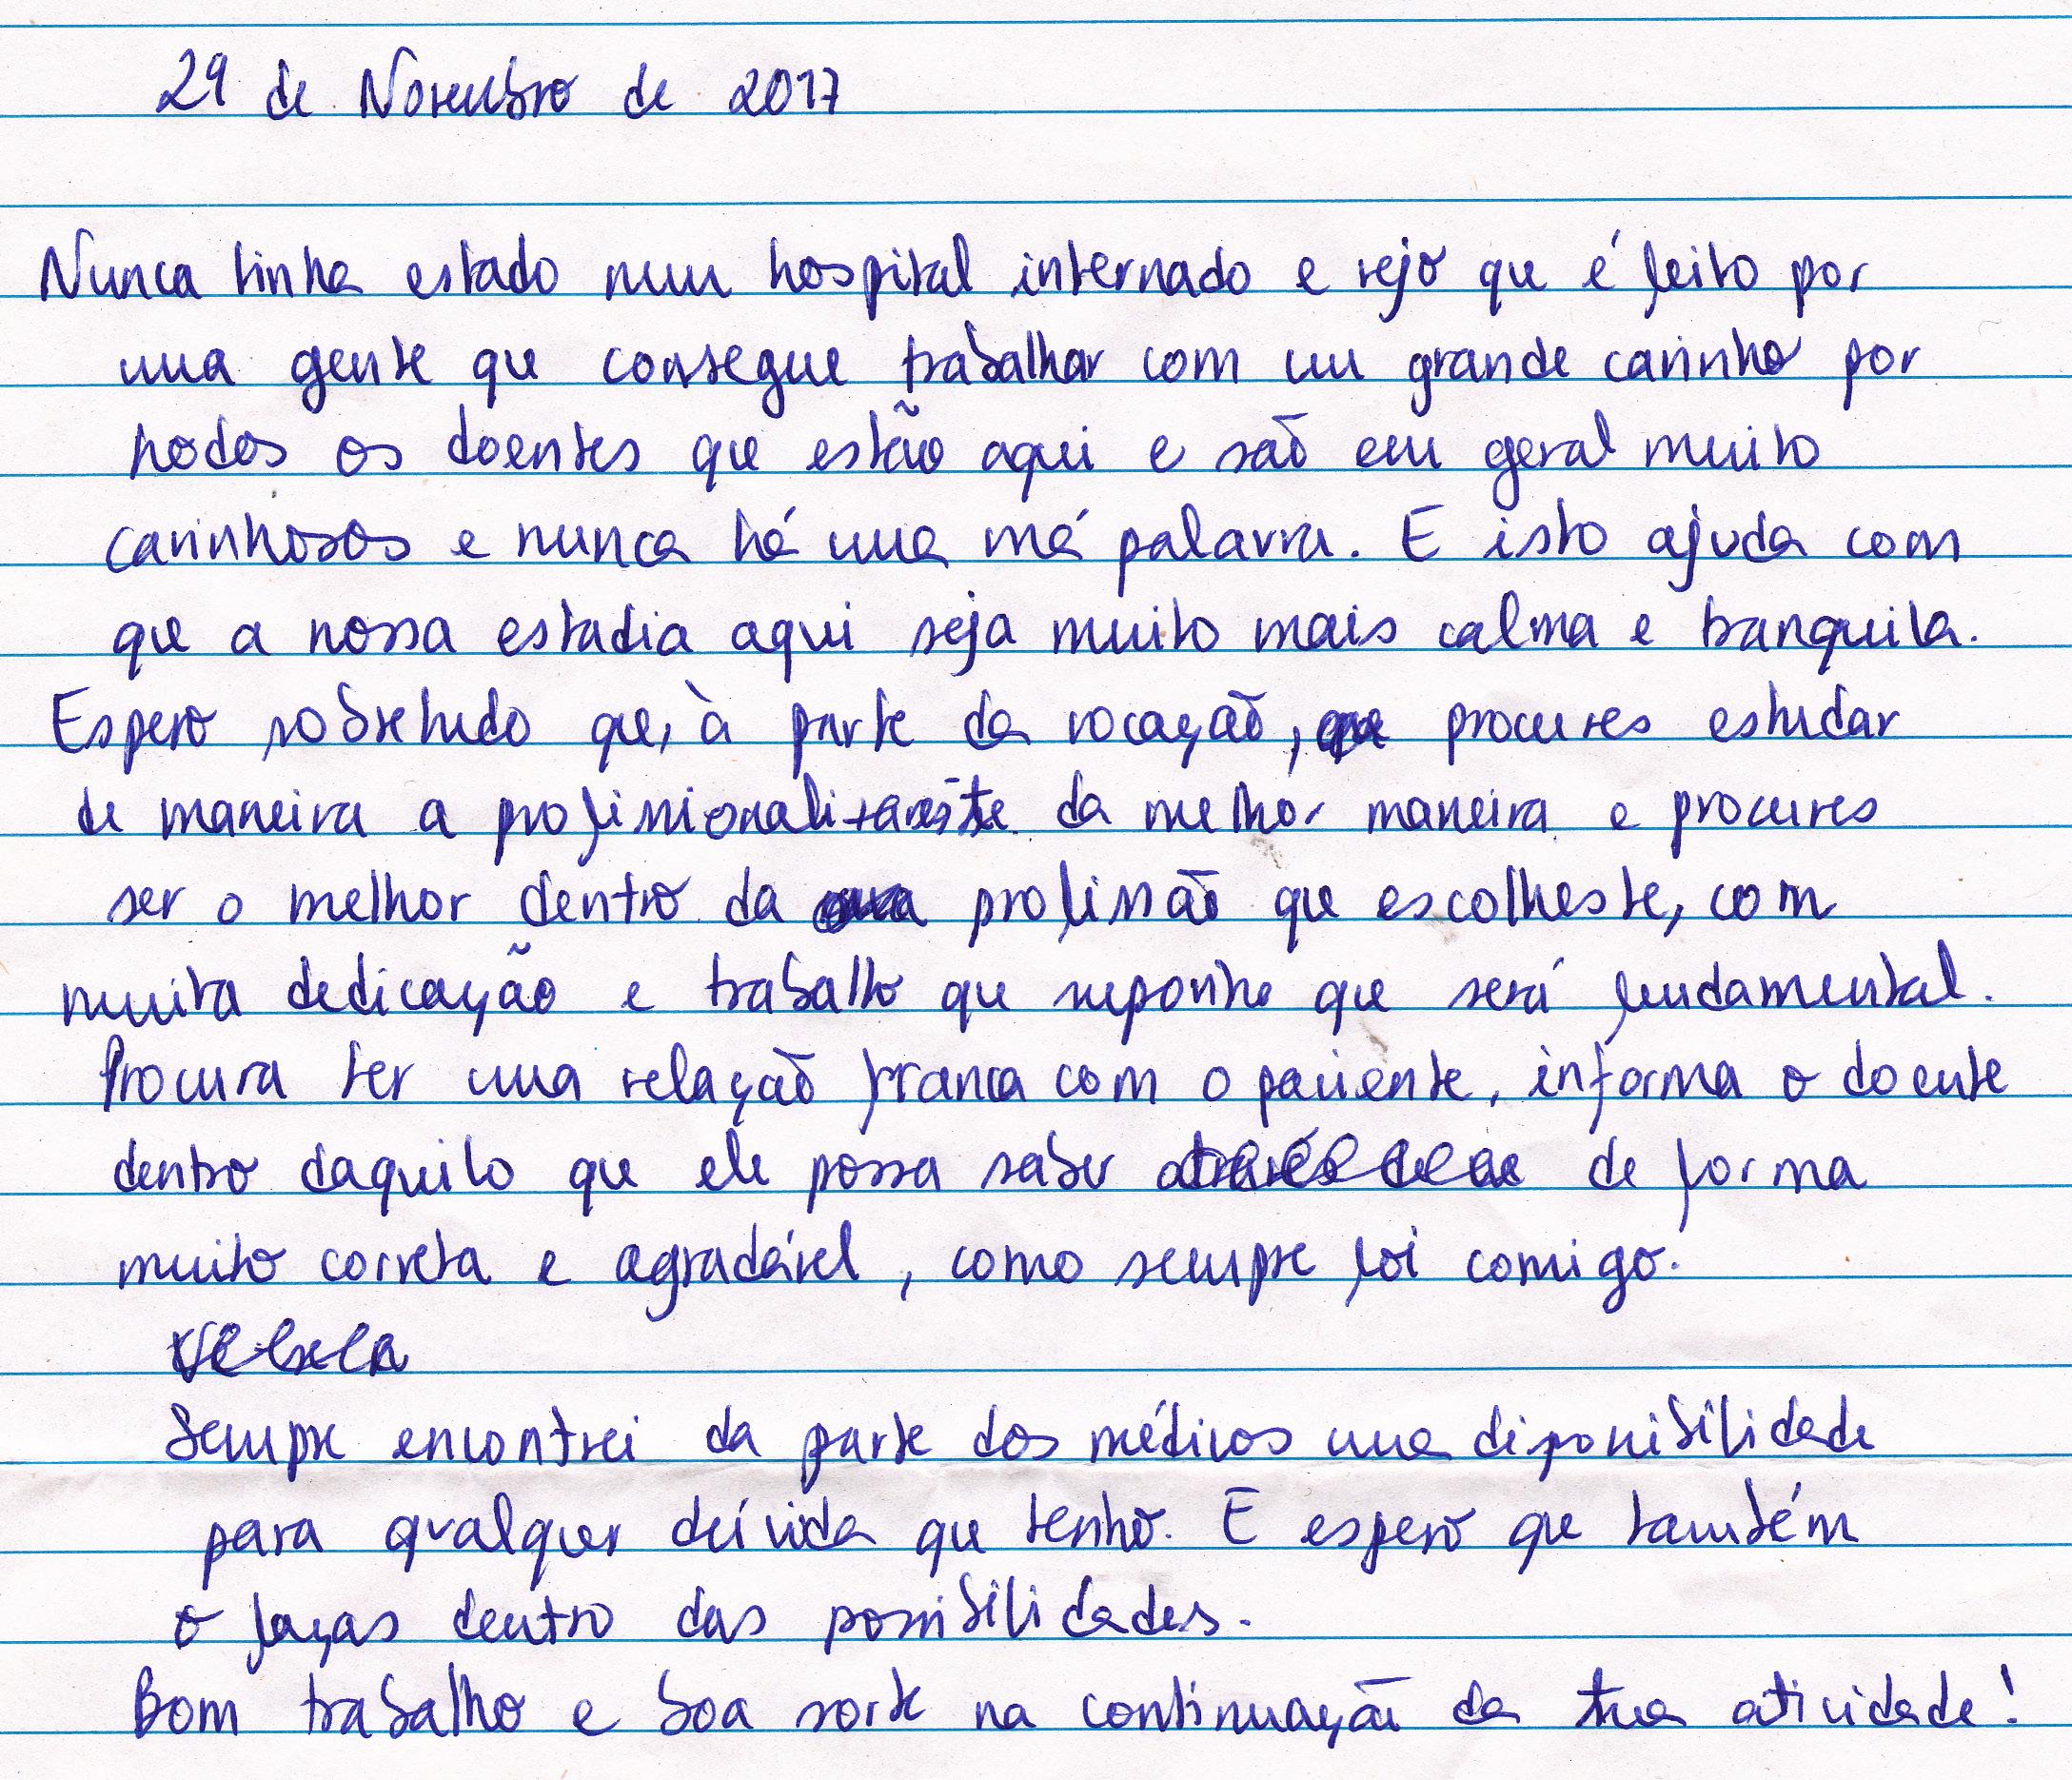 29 de Novembro de 2017
Nunca tinha estado num hospital internado e vejo que é feito por
uma gente que consegue trabalhar com um grande carinho por
todos os doentes que estão aqui e são em geral muito
carinhosos e nunca há uma má palavra. E isto ajuda com
que a nossa estadia aqui seja muito mais calma e tranquila.
Espero sobretudo que, à parte da vocação, procures estudar
de maneira a profissionalizares-te da melhor maneira e procures
ser o melhor dentro da profissão que escolheste, com
muita dedicação e trabalho que suponho que será fundamental.
Procura ter uma relação franca com o paciente, informa o doente
dentro daquilo que ele possa saber de forma
muito correta e agradável, como sempre foi comigo.
Sempre encontrei da parte dos médicos uma disponibilidade
para qualquer dúvida que tenho. E espero que também
o faças dentro das possibilidades.
Bom trabalho e boa sorte na continuação da tua atividade!